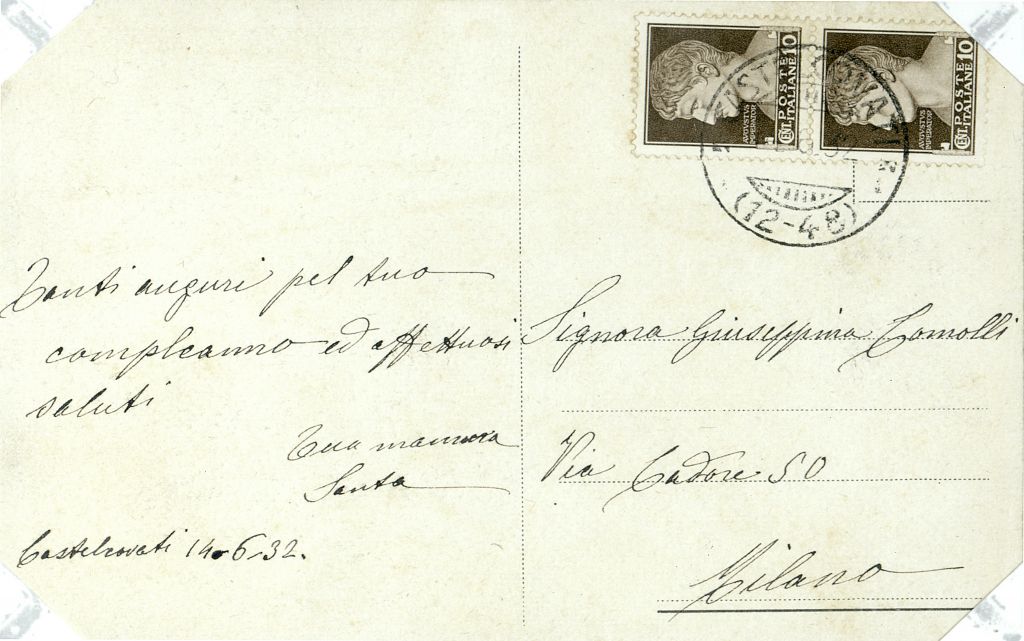 Tanti auguri pel tuo
compleanno ed affettuosi
saluti
Tua mamma
Santa
Castelcovati 14-6-32.
10
POSTE
ITALIANE
CENT
AVGVSTVS
IMPERATOR
10
POSTE
ITALIANE
CENT
AVGVSTVS
IMPERATOR
(12-48)
Signora Giuseppina Comolli
Via Cadore 50
Milano